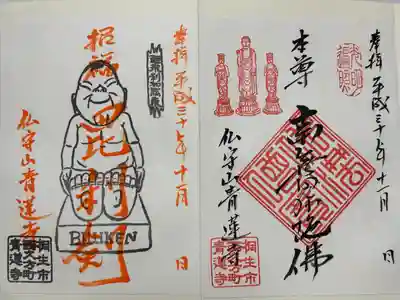 奉拝 平成三十年十一月 日
本尊
南無阿弥陀佛
仏守山青蓮寺
桐生市
西久方町
青蓮寺
奉拝 平成三十年十一月 日
招福
BILLIKEN
仏守山青蓮寺
桐生市
西久方町
青蓮寺